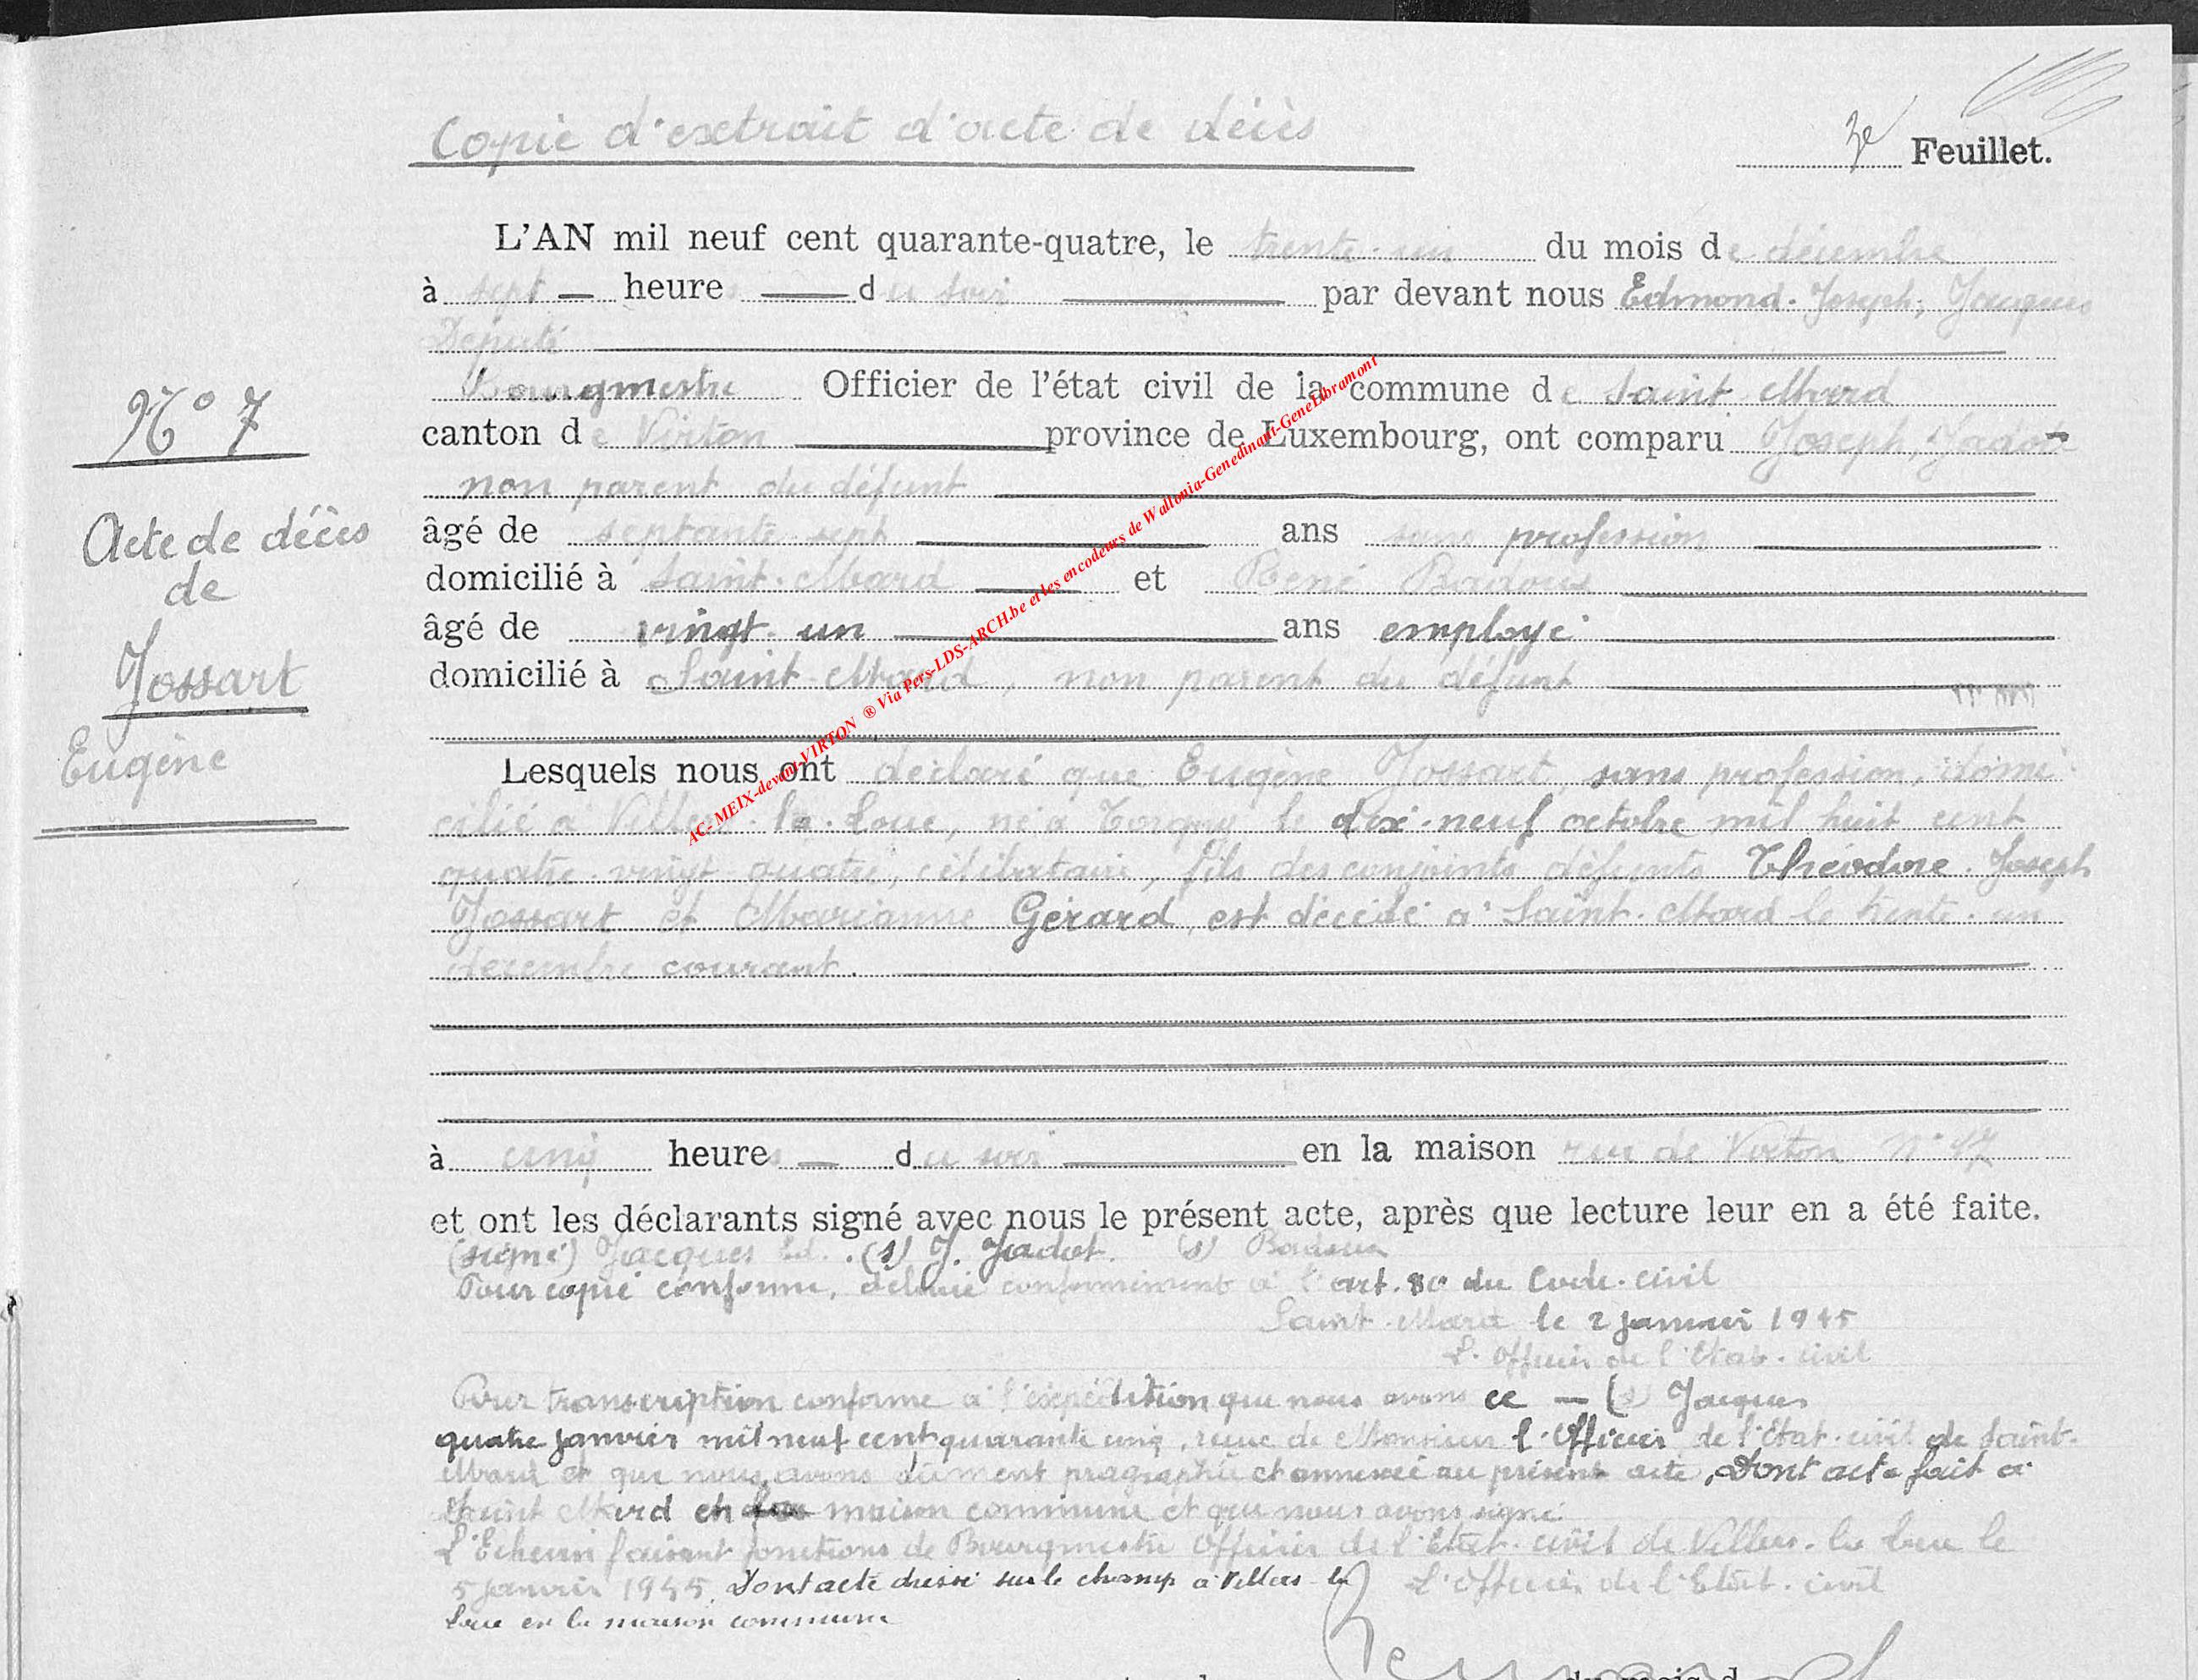 Copie d'extrait d'acte de décès
3e Feuillet.
L'AN mil neuf cent quarante-quatre, le trente-un du mois de décembre
à sept heures du soir par devant nous Edmond-Joseph, Jacques
Député
Bourgmestre Officier de l'état civil de la commune de Saint-Mard
canton de Virton province de Luxembourg, ont comparu Joseph, Jadot
non parent du défunt
âgé de septante-sept ans sans profession
domicilié à Saint-Mard et René Badoux
âgé de vingt-un ans employé
domicilié à Saint-Mard, non parent du défunt
N° 7
Acte de décès
de
Jossart
Eugène
Lesquels nous ont déclaré que Eugène Jossart, sans profession, domi-
cilié à Villers-la-Loue, né à Torgny le dix-neuf octobre mil huit cent
quatre-vingt-quatre, célibataire, fils des conjoints défunts Théodore-Joseph
Jossart et Marianne Gérard, est décédé à Saint-Mard le trente-un
décembre courant.
à cinq heures du soir en la maison rue de Virton n° 17
et ont les déclarants signé avec nous le présent acte, après que lecture leur en a été faite.
(signé) Jacques Ed. (s) J. Jadot. (s) Badoux
Pour copie conforme, délivré conformément à l'art. 80 du Code-civil
Saint-Mard le 2 janvier 1945
L'Officier de l'Etat-civil
Pour transcription conforme à l'expédition que nous avons ce — (s) Jacques
quatre janvier mil neuf cent quarante cinq, reçue de Monsieur l'Officier de l'état-civil de Saint-
Mard et que nous avons dûment paragraphié et annexée au présent acte, Dont acte fait à
Saint Mard en maison commune et que nous avons signé.
L'Echevin faisant fonctions de Bourgmestre Officier de l'état-civil de Villers-la-Loue le
5 janvier 1945. Dont acte dressé sur le champ à Villers-la L'Officier de l'Etat-civil
Loue en la maison commune
du mois d
AC- MEIX-devant-VIRTON ® Via Pers-LDS-ARCH.be et les encodeurs de Wallonia-Genedinant-GeneLibramont